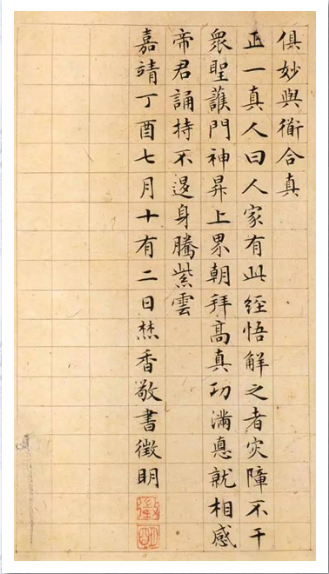 俱妙與衜合真
正一真人曰人家有此經悟解之者灾障不干
衆聖護門神昇上界朝拜高真功滿悳就相感
帝君誦持不退身騰紫雲
嘉靖丁酉七月十有二日焚香敬書徵明
徵明